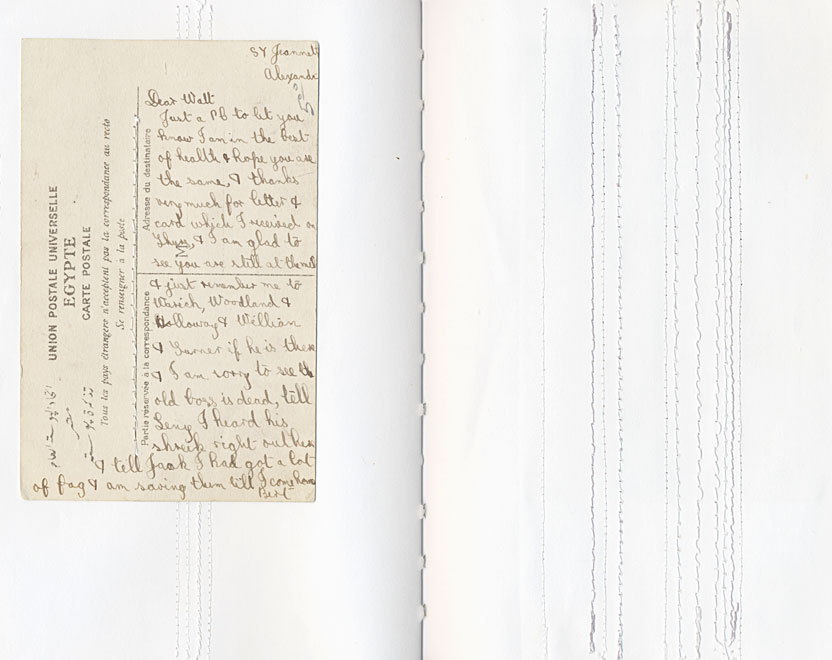 SY Jeannett
Alexand
Dear Walt
Just a PC to let you
know I am in the best
of health & hope you are
the same, & thanks
very much for letter &
card which I received on
& I am glad to
see you are still at the
& just remember me to
Warich, Woodland &
Holloway & William
& Garner if he is there
& I am sorry to see the
old boss is dead, tell
Leny I heard his
shreik right out here
& tell Jack I had got a lot
of fag & am saving them till I come home
Bert
UNION POSTALE UNIVERSELLE
EGYPTE
CARTE POSTALE
Tous les pays étrangers n'acceptent pas la correspondance au recto
Se renseigner à la poste
Adresse du destinataire
Partie réservée à la correspondance
M